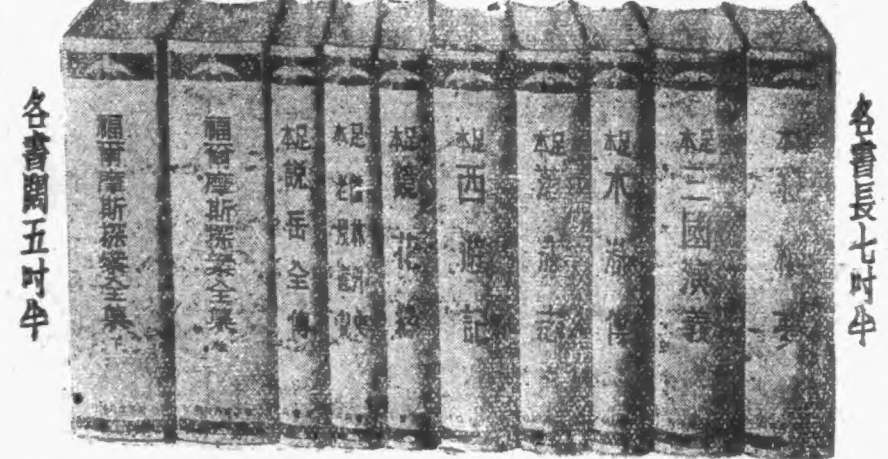 各書長七吋半
足本
紅樓夢
足本
三國演義
足本
水滸傳
足本
蕩寇志
足本
西遊記
足本
鏡花緣
足本
儒林外史
老殘遊記
足本
說岳全傳
福爾摩斯探案全集
福爾摩斯探案全集
各書闊五吋半